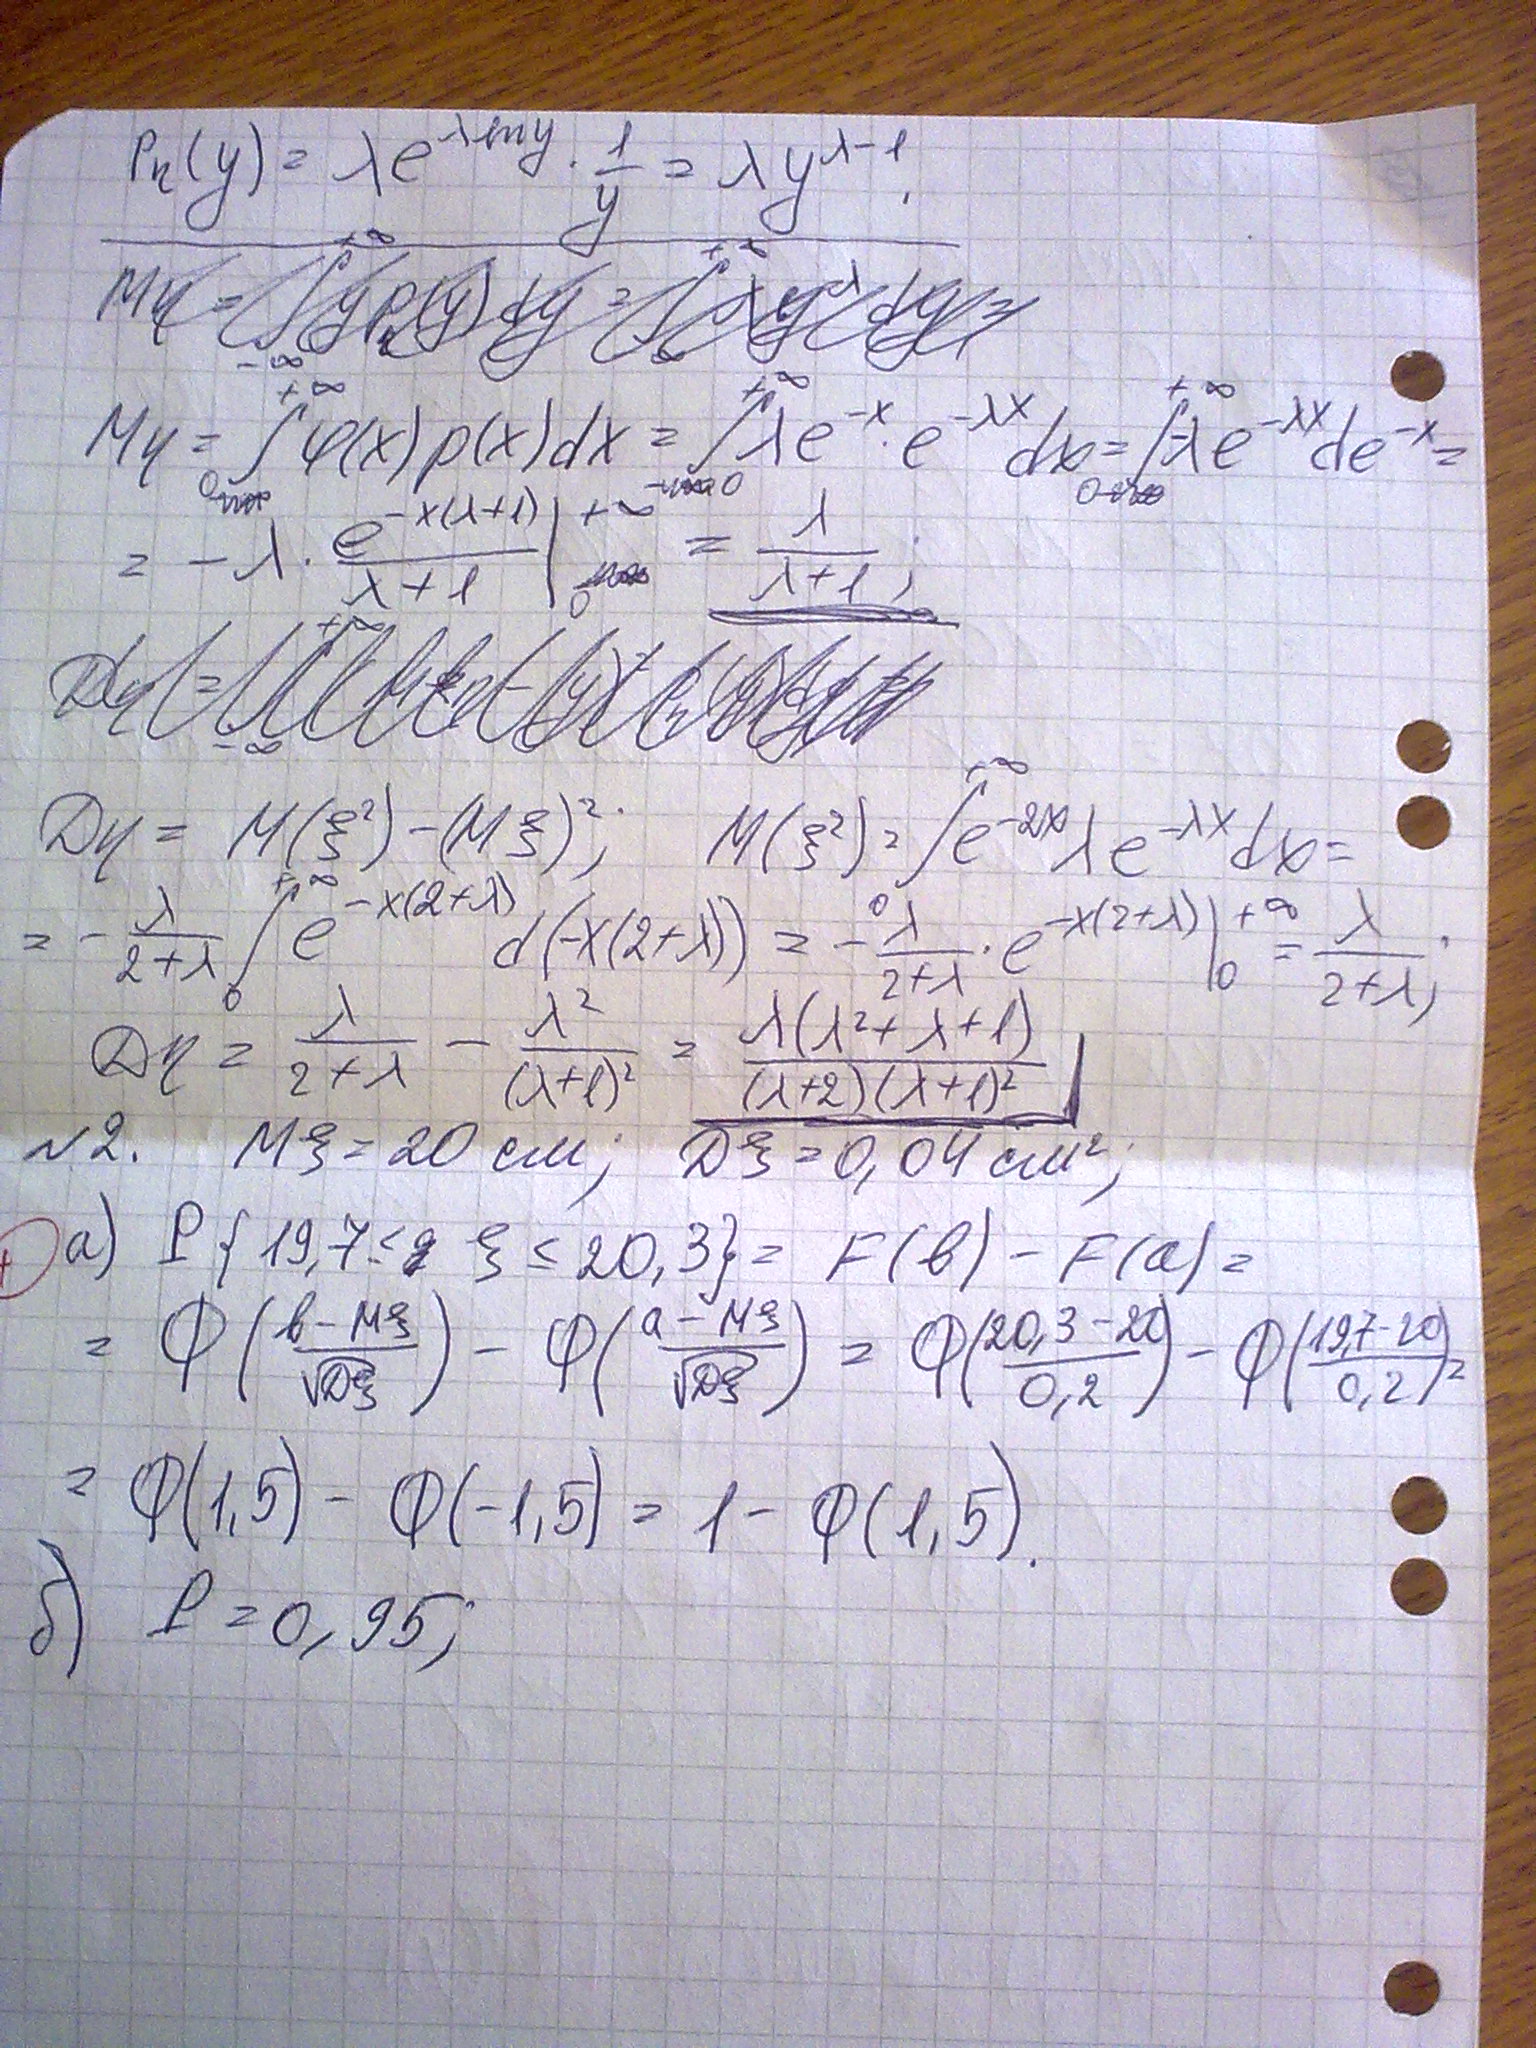 Pη(y) = λe^{λ ln y} · 1/y = λy^{λ-1};
Mη = ∫_{-∞}^{+∞} y pη(y) dy = ∫_{-∞}^{+∞} λy^λ dy =
Mη = ∫_0^{+∞} φ(x) p(x) dx = ∫_0^{+∞} λe^{-x} · e^{-λx} dx = ∫_0^{+∞} -λe^{-λx} de^{-x} =
= -λ · e^{-x(λ+1)}/(λ+1) |_0^{+∞} = λ/(λ+1);
Dη = M(ξ²) - (Mξ)²; M(ξ²) = ∫_0^{+∞} e^{-2x} λe^{-λx} dx =
= -λ/(2+λ) ∫_0^{+∞} e^{-x(2+λ)} d(-x(2+λ)) = -λ/(2+λ) · e^{-x(2+λ)} |_0^{+∞} = λ/(2+λ);
Dη = λ/(2+λ) - λ²/(λ+1)² = λ(λ²+λ+1)/((λ+2)(λ+1)²)
№2. Mξ = 20 см; Dξ = 0,04 см²;
+ а) P{19,7 ≤ ξ ≤ 20,3} = F(b) - F(a) =
= Φ((b-Mξ)/√Dξ) - Φ((a-Mξ)/√Dξ) = Φ((20,3-20)/0,2) - Φ((19,7-20)/0,2) =
= Φ(1,5) - Φ(-1,5) = 1 - Φ(1,5).
б) P = 0,95;